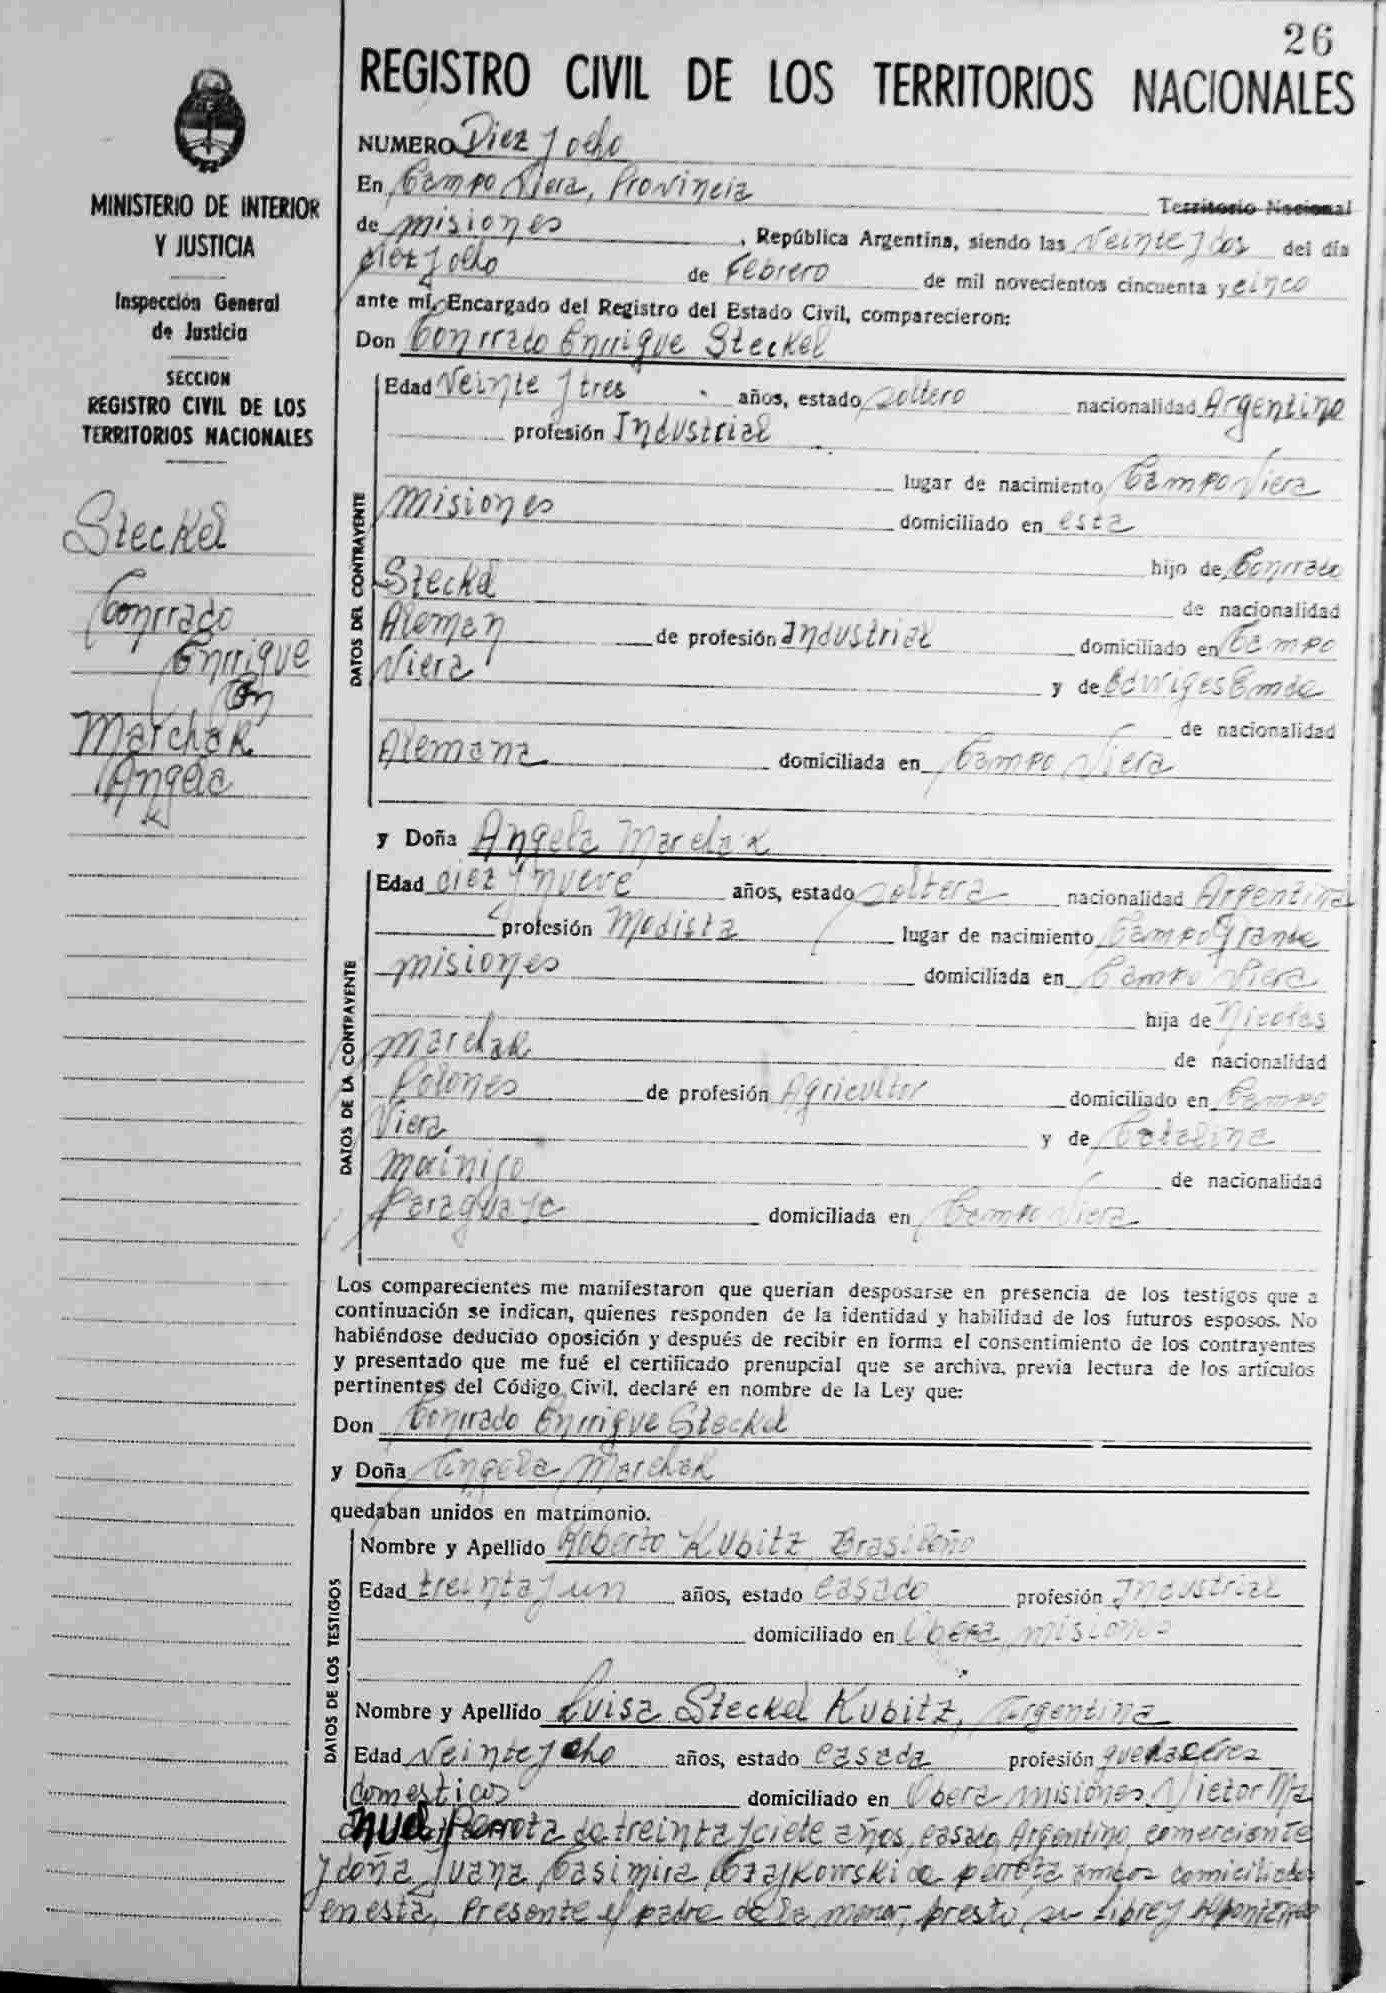 26
REGISTRO CIVIL DE LOS TERRITORIOS NACIONALES
MINISTERIO DE INTERIOR
Y JUSTICIA
Inspección General
de Justicia
SECCION
REGISTRO CIVIL DE LOS
TERRITORIOS NACIONALES
Steckel
Conrrado
Enrrique
Con
Marchak
Angela
NUMERO Diez y ocho
En Campo Viera, Provincia Territorio Nacional
de Misiones, República Argentina, siendo las Veinte y dos del día
diez y ocho de Febrero de mil novecientos cincuenta y cinco
ante mí, Encargado del Registro del Estado Civil, comparecieron:
Don Conrrado Enrrique Steckel
DATOS DEL CONTRAYENTE
Edad Veinte y tres años, estado soltero nacionalidad Argentino
profesión Industrial
lugar de nacimiento Campo Viera
Misiones domiciliado en esta
hijo de Conrrado
Steckel de nacionalidad
Aleman de profesión Industrial domiciliado en Campo
Viera y de Edwiges Emda
de nacionalidad
Alemana domiciliada en Campo Viera
y Doña Angela Marchak
DATOS DE LA CONTRAYENTE
Edad diez y nueve años, estado soltera nacionalidad Argentina
profesión Modista lugar de nacimiento Campo Grande
Misiones domiciliada en Campo Viera
hija de Nicolas
Marchak de nacionalidad
Polones de profesión Agricultor domiciliado en Campo
Viera y de Catalina
de nacionalidad
Paraguaya domiciliada en Campo Viera
Los comparecientes me manifestaron que querían desposarse en presencia de los testigos que a
continuación se indican, quienes responden de la identidad y habilidad de los futuros esposos. No
habiéndose deducido oposición y después de recibir en forma el consentimiento de los contrayentes
y presentado que me fué el certificado prenupcial que se archiva, previa lectura de los artículos
pertinentes del Código Civil, declaré en nombre de la Ley que:
Don Conrrado Enrrique Steckel
y Doña Angela Marchak
quedaban unidos en matrimonio.
DATOS DE LOS TESTIGOS
Nombre y Apellido Roberto Kubitz Brasileño
Edad treinta y un años, estado casado profesión Industrial
domiciliado en Obera Misiones
Nombre y Apellido Luisa Steckel Kubitz, Argentina
Edad Veinte y ocho años, estado casada profesión quehaceres
domesticos domiciliado en Obera Misiones Victor Ma
nuel Perrota de treinta y ciete años, casado, Argentino, comerciente
y doña Juana Casimira Czajkowski de perrota ambos domiciliados
en esta, Presente el padre de la menor, presto su libre y